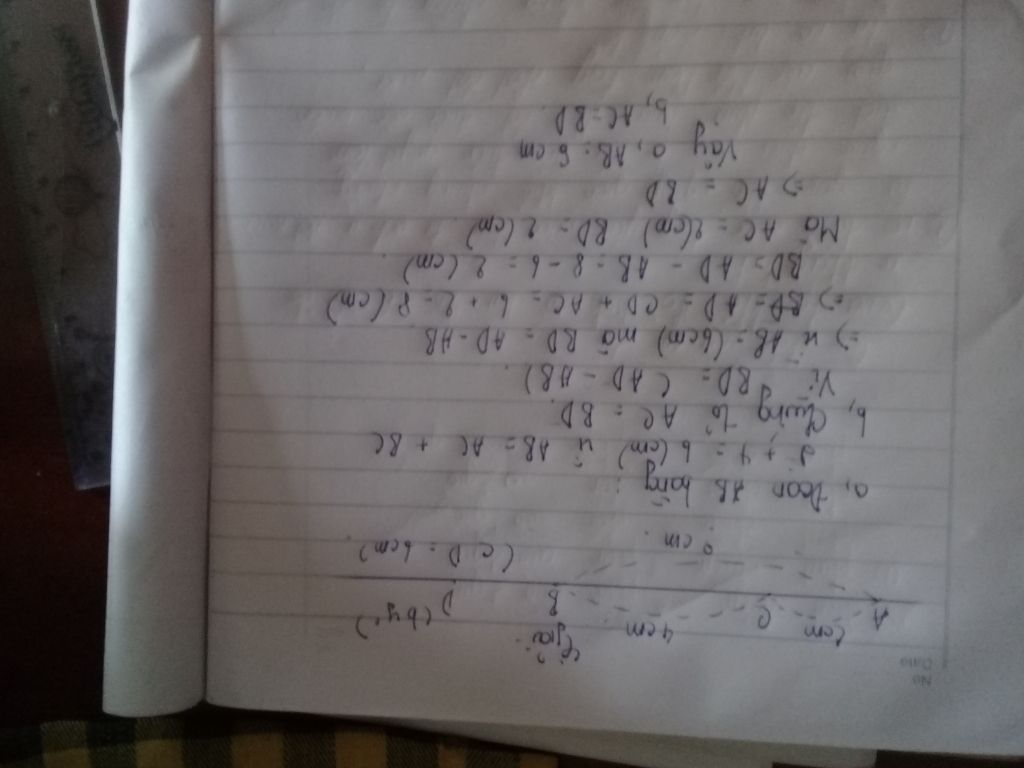 No
Date
Giải:
A 2cm C 4cm B D (by')
? cm. (CD = 6cm)
a, Đoạn AB bằng:
2 + 4 = 6(cm) vì AB = AC + BC
b, Chứng tỏ AC = BD.
Vì BD = (AD - AB).
=> vì AB = (6cm) mà BD = AD - AB
=> BD = AD = CD + AC = 6 + 2 = 8(cm)
BD = AD - AB = 8 - 6 = 2(cm).
Mà AC = 2(cm) BD = 2(cm).
=> AC = BD
Vậy a, AB = 6cm
b, AC = BD.